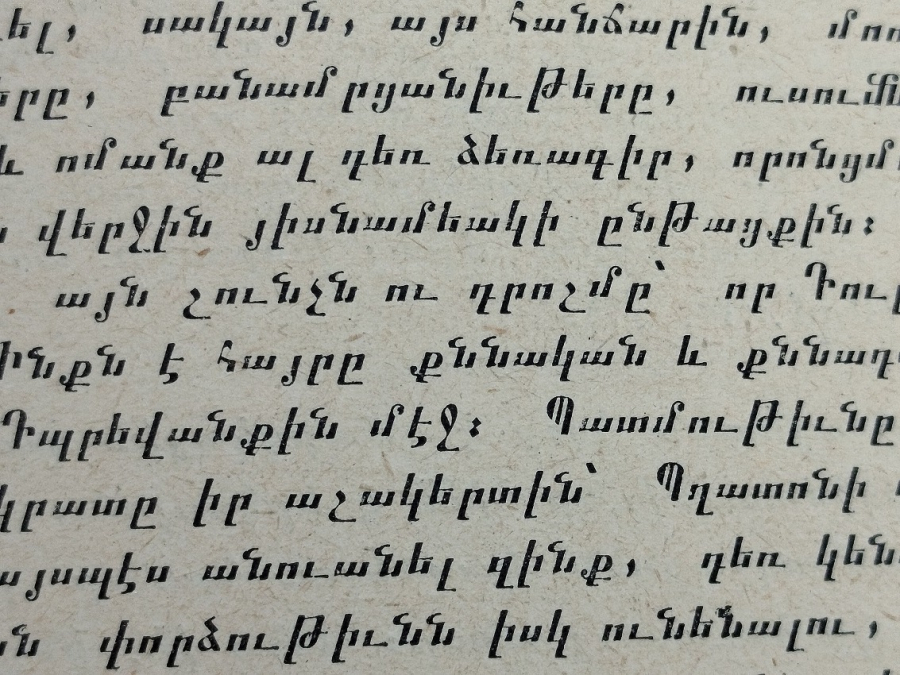 ել, սակայն, այս հանճարին,
երը, բանամրցանիւթերը, ուսում
և ոմանք ալ դեռ ձեռագիր, որոնցմ
վերջին յիսնամեակի ընթացքին։
այն շունչն ու դրոշմը՝ որ Դուր
ինքն է հայրը քննական և քննադ
Դպրեվանքին մէջ։ Պատմութիւնը
կրատը իր աշակերտին՝ Պղատոնի
այսպէս անուանել զինք, դեռ կեն
ն փորձութիւնն իսկ ունենալու,